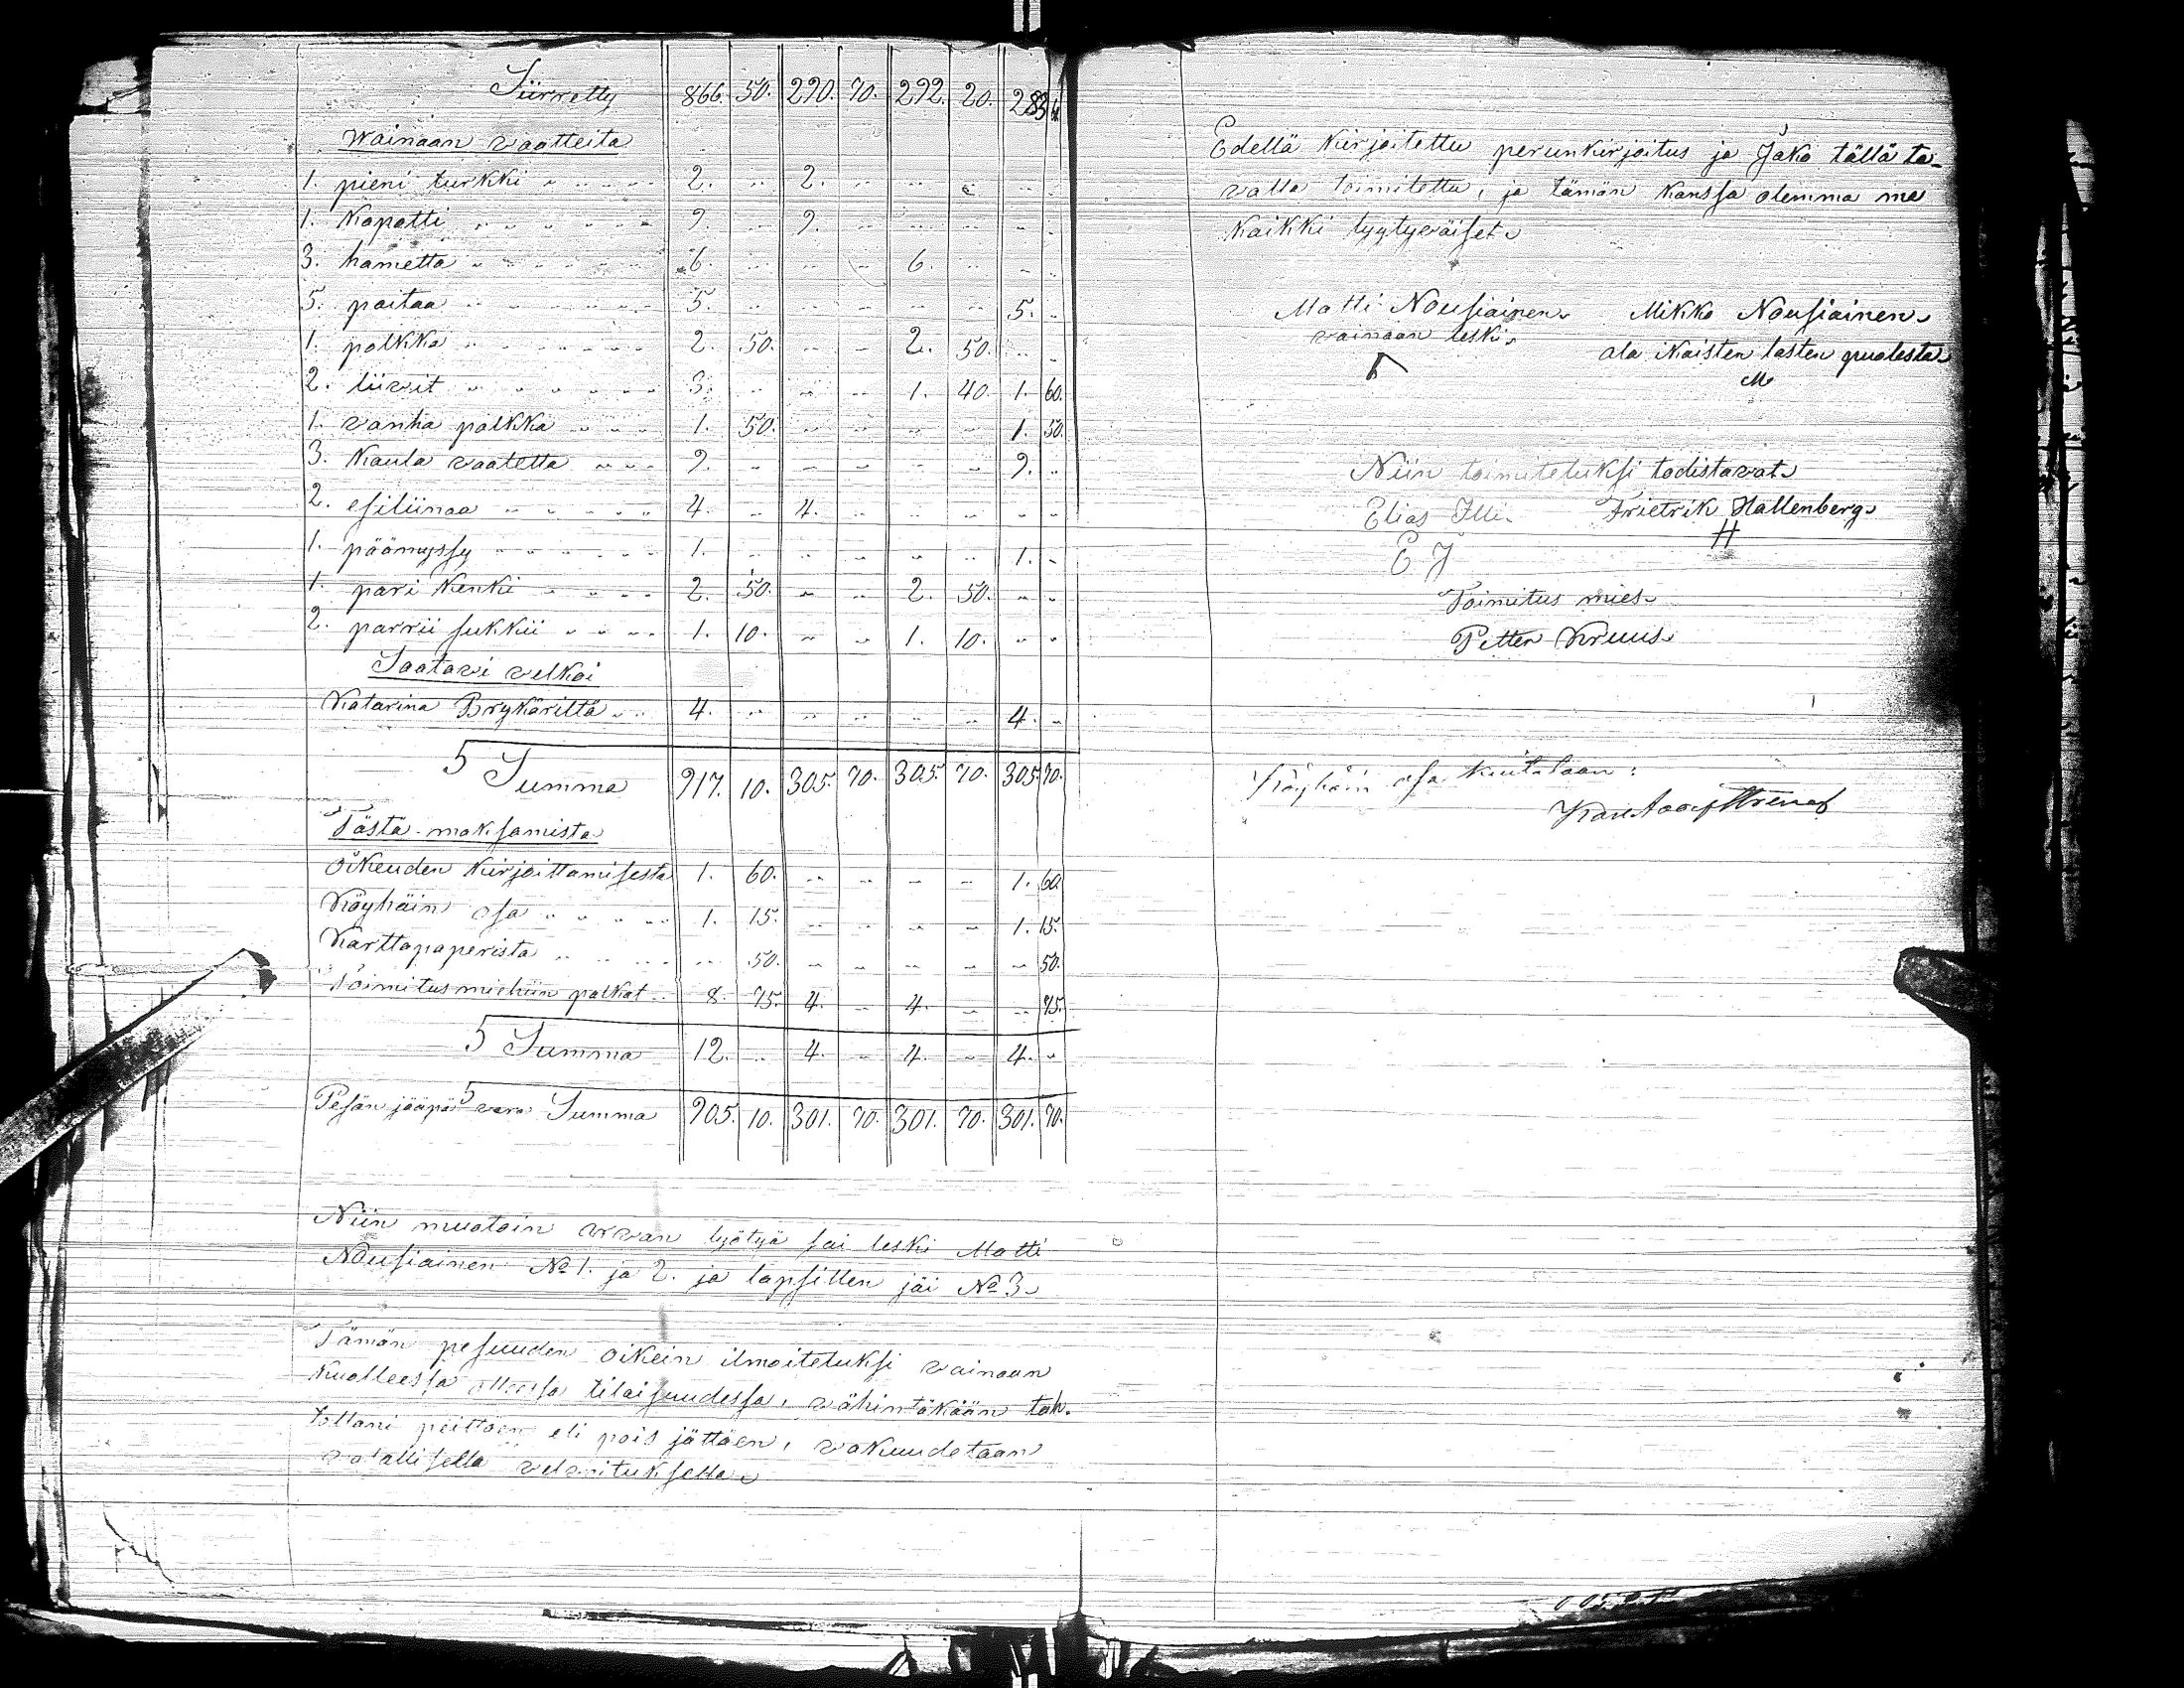 Siirretty 866. 50. 290. 70. 292. 20. 283
Wainaan vaatteita
1. pieni turkki " " " " " 2. " 2. " " " " "
1. Kapotti " " " " " " 9. " 9. " " " " "
3. hametta " " " " " " 6. " " " 6. " " "
5. paitaa " " " " " " 5. " " " " " 5. "
1. polkka " " " " " " 2. 50. " " 2. 50. " "
2. liivit " " " " " " 3. " " " 1. 40. 1. 60.
1. vanha polkka " " " " 1. 50. " " " " 1. 50.
3. Kaula vaatetta " " " 9. " " " " " 9. "
2. esiliinaa " " " " " 4. " 4. " " " " "
1. päämyssy " " " " " " 1. " " " " " 1. "
1. pari Kenkii " " " " 2. 50. " " 2. 50. " "
2. parrii sukkii " " " " 1. 10. " " 1. 10. " "
Saatavi velkoi
Katarina Brykäriltä " " 4. " " " " " 4. "
Summa 917. 10. 305. 70. 305. 70. 305. 70.
Tästä maksamista
Oikeuden Kirjoittamisesta 1. 60. " " " " 1. 60.
Köyhäin osa " " " " " 1. 15. " " " " 1. 15.
Karttapaperista " " " " " 50. " " " " " 50.
Toimitusmiehiin palkat " 8. 75. 4. " 4. " " 75.
Summa 12. " 4. " 4. " 4. "
Pesän jääpä vara Summa 905. 10. 301. 70. 301. 70. 301. 70.
Niin muotoin arvan lyötyä sai leski Matti
Nousiainen No 1. ja 2. ja lapsillen jäi No 3.
Tämän pesuuden oikein ilmoitetuksi vainaan
Kuolleessa ollessa tilaisuudessa, vähintäkään tah-
tottani peittäen eli pois jättäen, vakuudetaan
valallisella velvoituksella.
Edellä Kirjoitettu perunkirjoitus ja Jako tällä ta-
valla toimitettu, ja tämän kanssa olemma me
Kaikki tyytyväiset.
Matti Nousiainen Mikko Nousiainen
vainaan leski. ala ikaisten lasten puolesta
M
Niin toimitetuksi todistavat
Elias Illi. Frietrik Hallenberg
E J H
Toimitus mies
Petter Kruus
Köyhäin osa kuitataan: